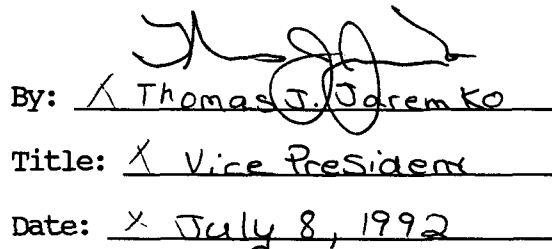 By: X Thomas J. Jaremko
Title: X Vice President
Date: X July 8, 1992